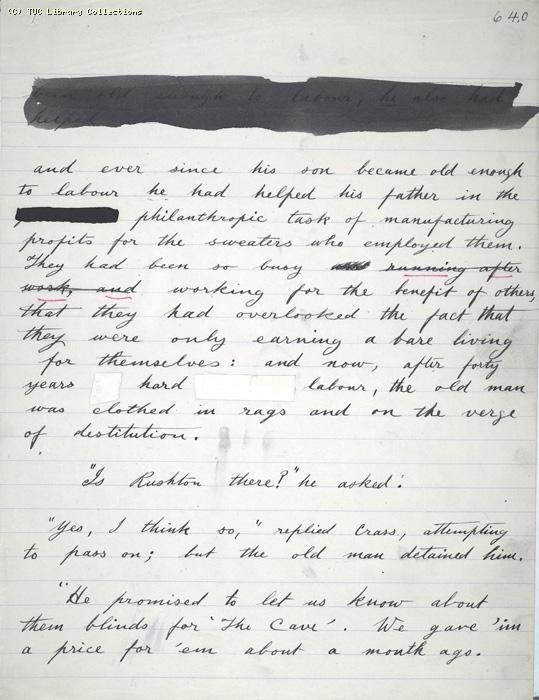 (C) TUC Library Collections
640
old enough to labour, he also had
helped
and ever since his son became old enough
to labour he had helped his father in the
philanthropic task of manufacturing
profits for the sweaters who employed them.
They had been so busy running after
work, and working for the benefit of others,
that they had overlooked the fact that
they were only earning a bare living
for themselves: and now, after forty
years hard labour, the old man
was clothed in rags and on the verge
of destitution.
"Is Rushton there?" he asked.
"Yes, I think so," replied Crass, attempting
to pass on; but the old man detained him.
"He promised to let us know about
them blinds for 'The Cave'. We gave 'im
a price for 'em about a month ago.